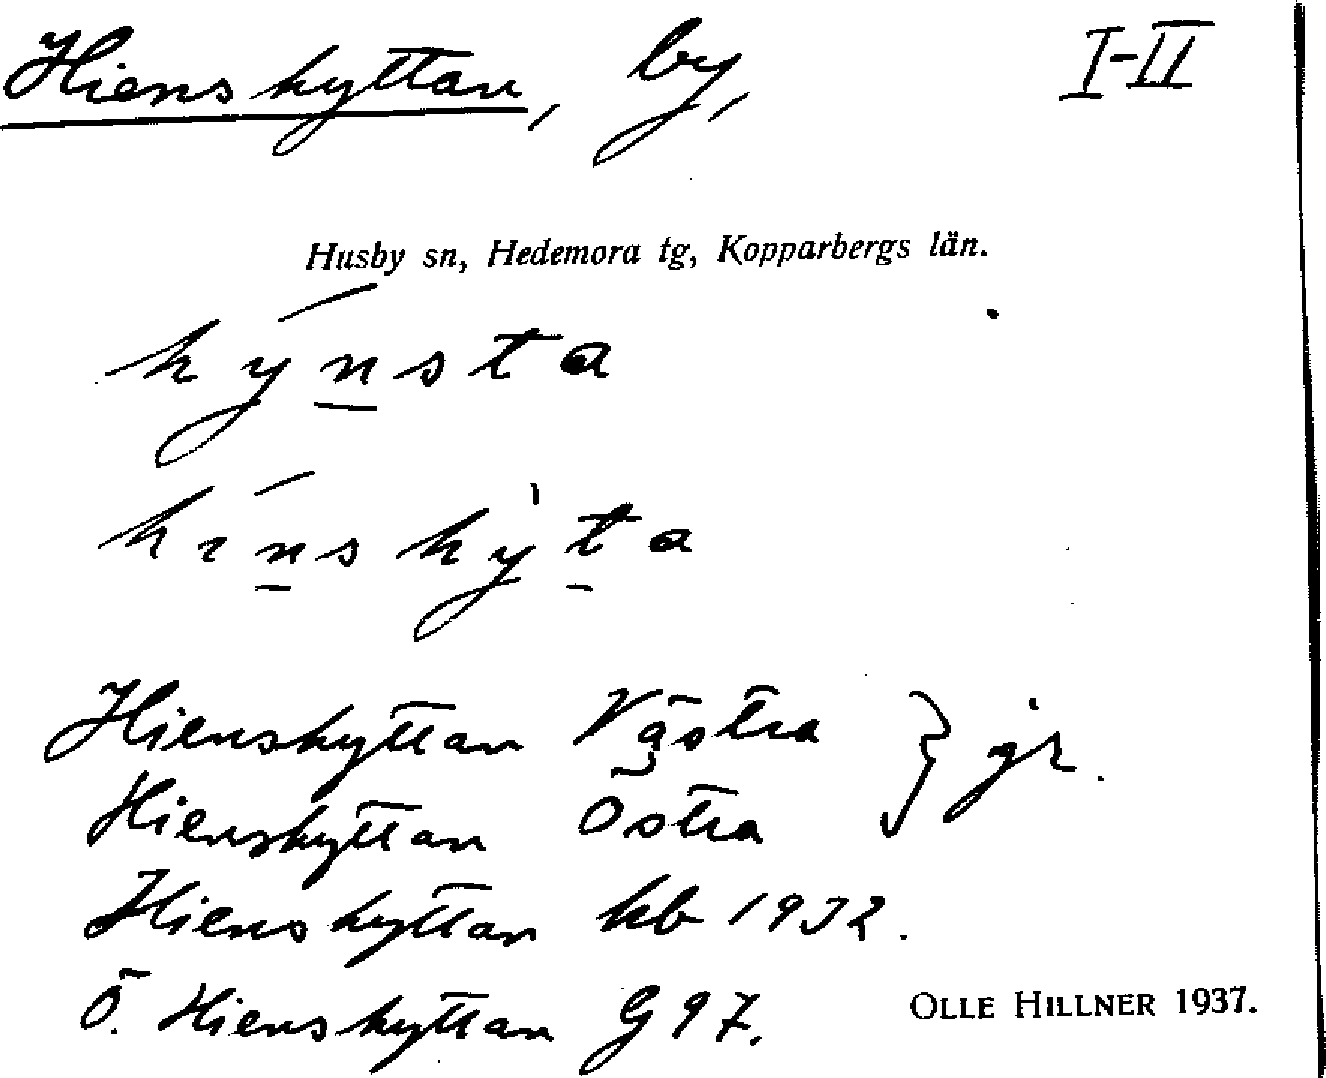 Hienshyttan, by, I-II
Husby sn, Hedemora tg, Kopparbergs län.
hynsta
hinshyta
Hienshyttan Västra } jr.
Hienshyttan Östra
Hienshyttan kb 1932.
Ö. Hienshyttan G97.
OLLE HILLNER 1937.